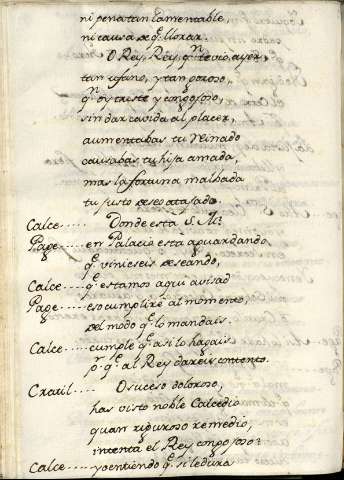 ni pena tan lamentable
ni causa de q.e llorar.
O Rey, Rey, q.n te vio, ayer,
tan ufano, y tan poroso,
q.n oy triste y congojoso,
sin dar cavida al placer,
aumentabas tu Reinado
causabas tu hija amada,
mas la fortuna malbada
tu justo deseo atajado.
Calce..... Donde esta S. M.?
Page..... en Palacio esta aguardando
q.e vinieseis deseando,
Calce..... q.e estamos aqui avisad
Page..... eso cumplire al momento,
del modo q.e lo mandais.
Calce..... cumple q.e asi lo hagais
p.r q.e al Rey dareis contento.
Cratil.... O suceso doloroso,
has visto noble Calcedio
quan riguroso remedio,
intenta el Rey congojoso?
Calce..... yo entiendo q.e si le dura